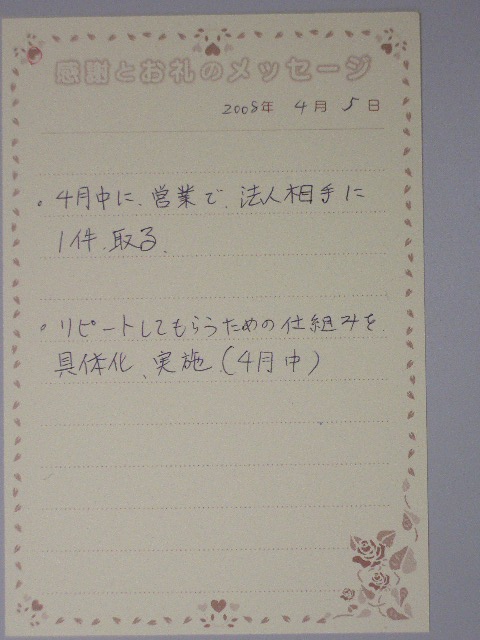 感謝とお礼のメッセージ
2008年 4月 5日
・4月中に、営業で、法人相手に
1件、取る。
・リピートしてもらうための仕組みを
具体化、実施(4月中)